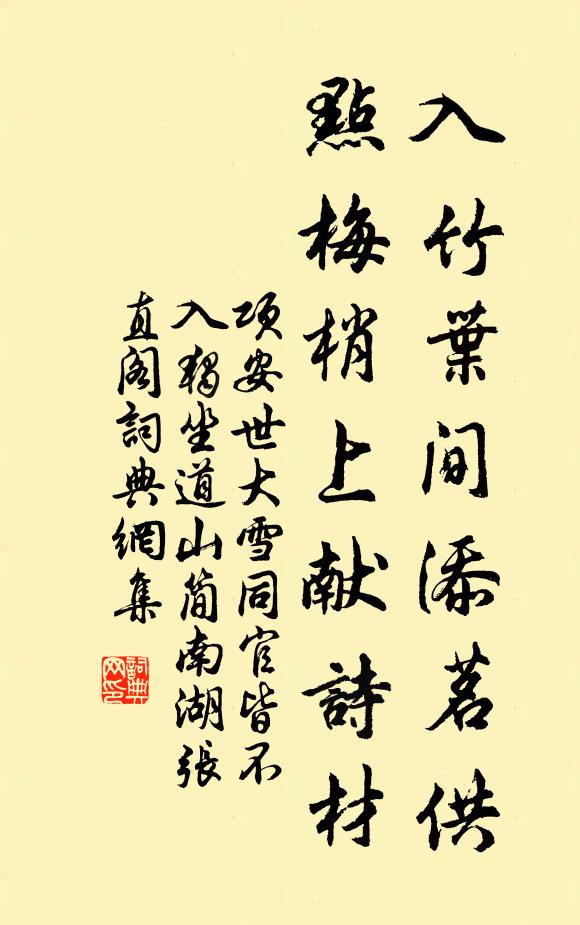 入竹葉間添茗供
點梅梢上献詩材
項安世大雪同官皆不
入獨坐道山简南湖張
直阁詞典網集
詞典网印